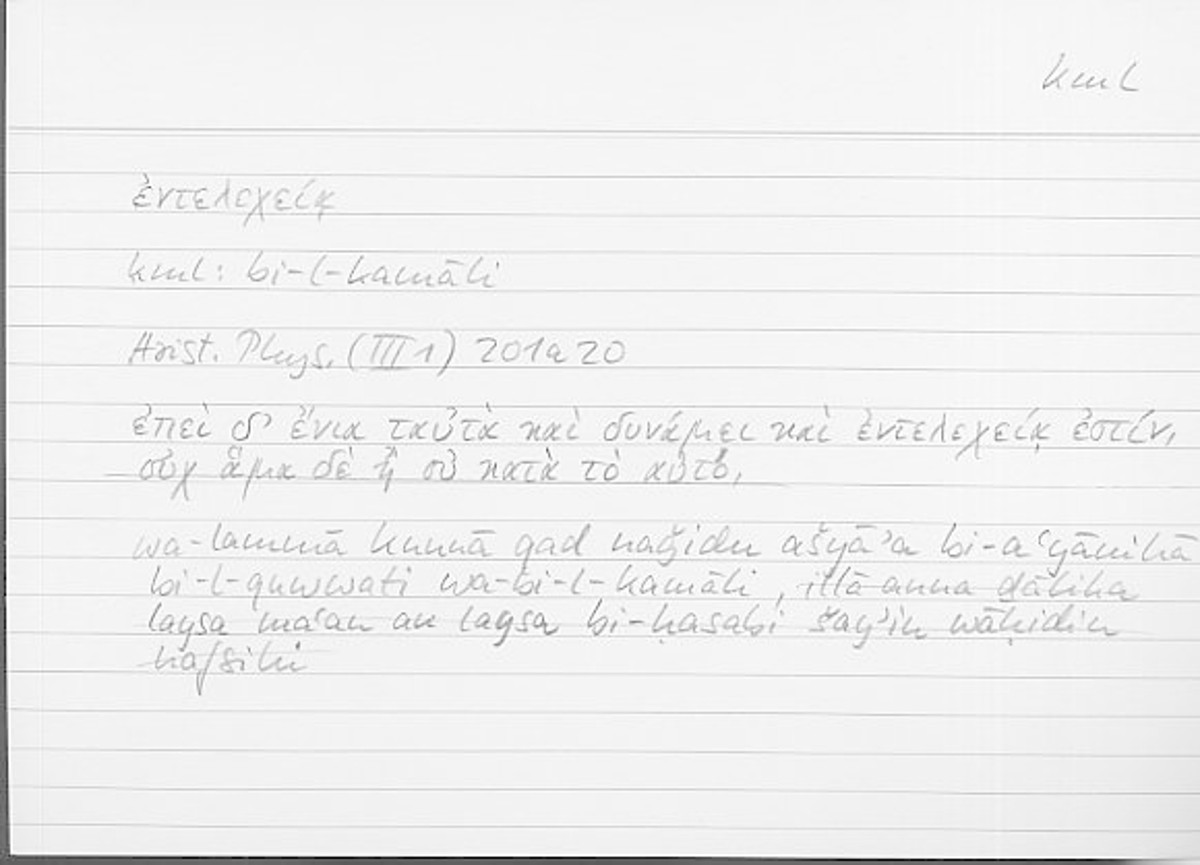 kml
ἐντελεχείᾳ
kml: bi-l-kamāli
Arist. Phys. (III 1) 201a20
ἐπεὶ δ' ἔνια ταὐτὰ καὶ δυνάμει καὶ ἐντελεχείᾳ ἐστίν,
οὐχ ἅμα δὲ ἢ οὐ κατὰ τὸ αὐτό,
wa-lammā kunnā qad naǧidu ašyāʾa bi-aʿyānihā
bi-l-quwwati wa-bi-l-kamāli, illā anna ḏālika
laysa maʿan au laysa bi-ḥasabi šayʾin wāḥidin
nafsihi